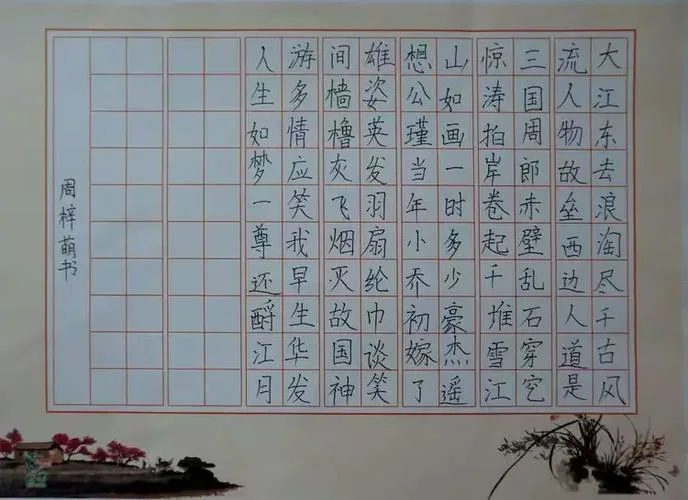 大江东去浪淘尽千古风
流人物故垒西边人道是
三国周郎赤壁乱石穿空
惊涛拍岸卷起千堆雪江
山如画一时多少豪杰遥
想公瑾当年小乔初嫁了
雄姿英发羽扇纶巾谈笑
间樯橹灰飞烟灭故国神
游多情应笑我早生华发
人生如梦一尊还酹江月
周梓萌书